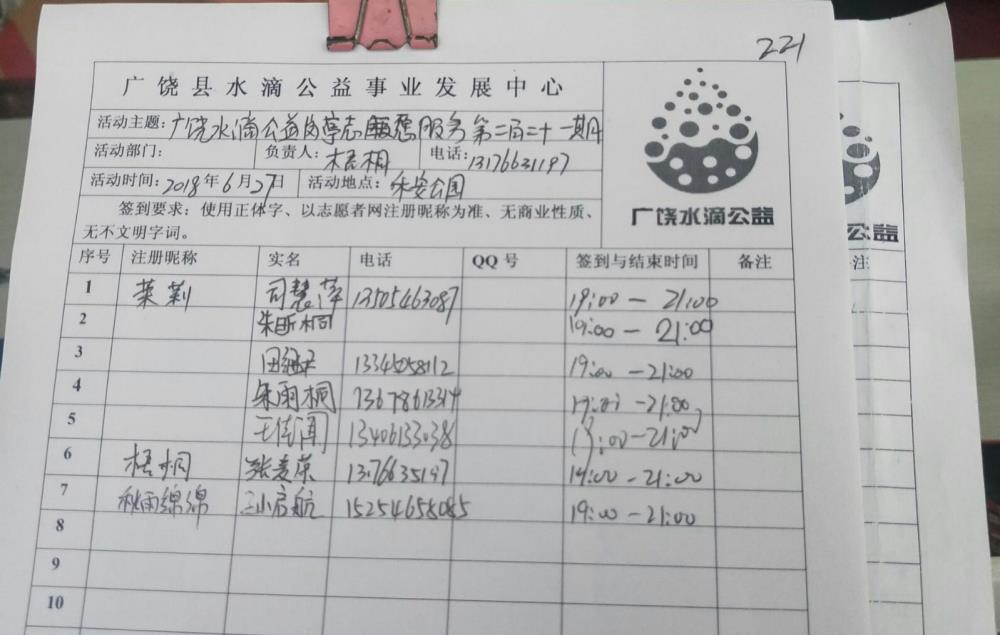 221
广饶县水滴公益事业发展中心
活动主题:广饶水滴公益岗亭志愿服务第二百二十一期
活动部门: 负责人:梧桐 电话:13176631197
活动时间:2018年6月27日 活动地点:乐安公园
签到要求:使用正体字、以志愿者网注册昵称为准、无商业性质、
无不文明字词。
广饶水滴公益
序号 注册昵称 实名 电话 QQ号 签到与结束时间 备注
1 茉莉 司慧萍 13505463087 19:00-21:00
2 朱昕桐 19:00-21:00
3 13345058112 19:00-21:00
4 朱雨桐 13678613314 19:00-21:00
5 王倩闻 13406133038 19:00-21:00
6 梧桐 19:00-21:00
7 秋雨绵绵 启航 15254658085 19:00-21:00
8
9
10
公益
注